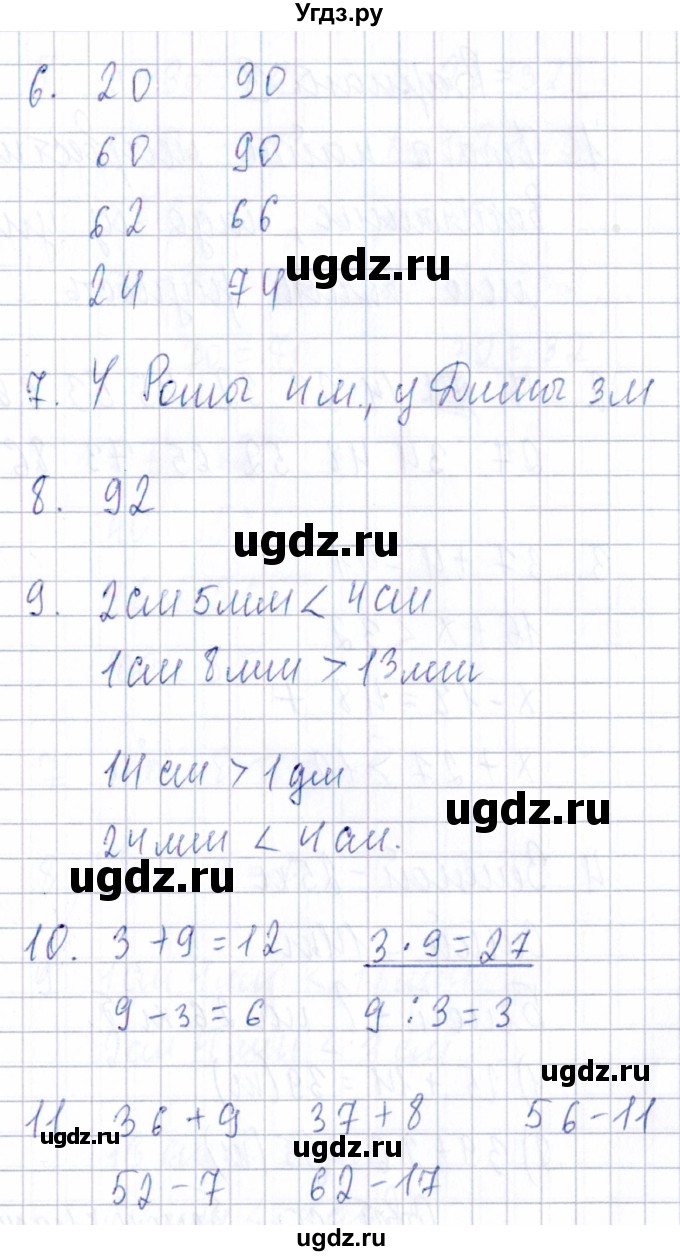 Угдз.ру
6. 20 90
60 90
62 66
24 74
ugdz.ru
7. У Ромы 4 м., у Димы 3 м
8. 92
ugdz.ru
9. 2 см 5 мм < 4 см
1 см 8 мм > 13 мм
14 см > 1 дм
ugdz.ru
24 мм < 4 см.
ugdz.ru
10. 3 + 9 = 12 3 · 9 = 27
9 - 3 = 6 9 : 3 = 3
ugdz.ru
11. 36 + 9 37 + 8 56 - 11
ugdz.ru
ugdz.ru
52 - 7 62 - 17
ugdz.ru